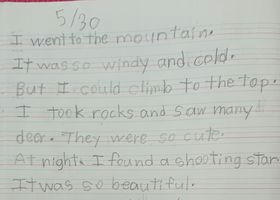 5/30
I went to the mountain.
It was so windy and cold.
But I could climb to the top.
I took rocks and saw many
deer. They were so cute.
At night. I found a shooting star
It was so beautiful.